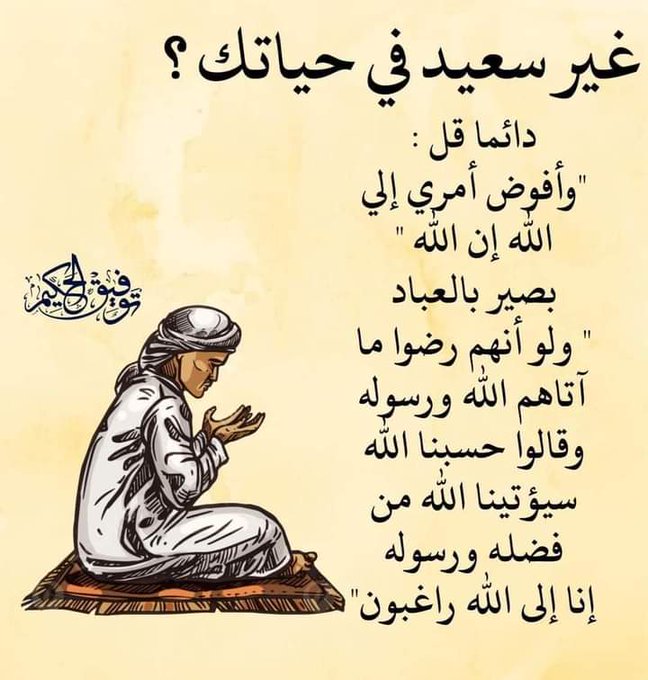 غير سعيد في حياتك ؟
دائما قل :
"وأفوض أمري إلي
الله إن الله "
بصير بالعباد
" ولو أنهم رضوا ما
آتاهم الله ورسوله
وقالوا حسبنا الله
سيؤتينا الله من
فضله ورسوله
إنا إلى الله راغبون"
توفيق الحكيم